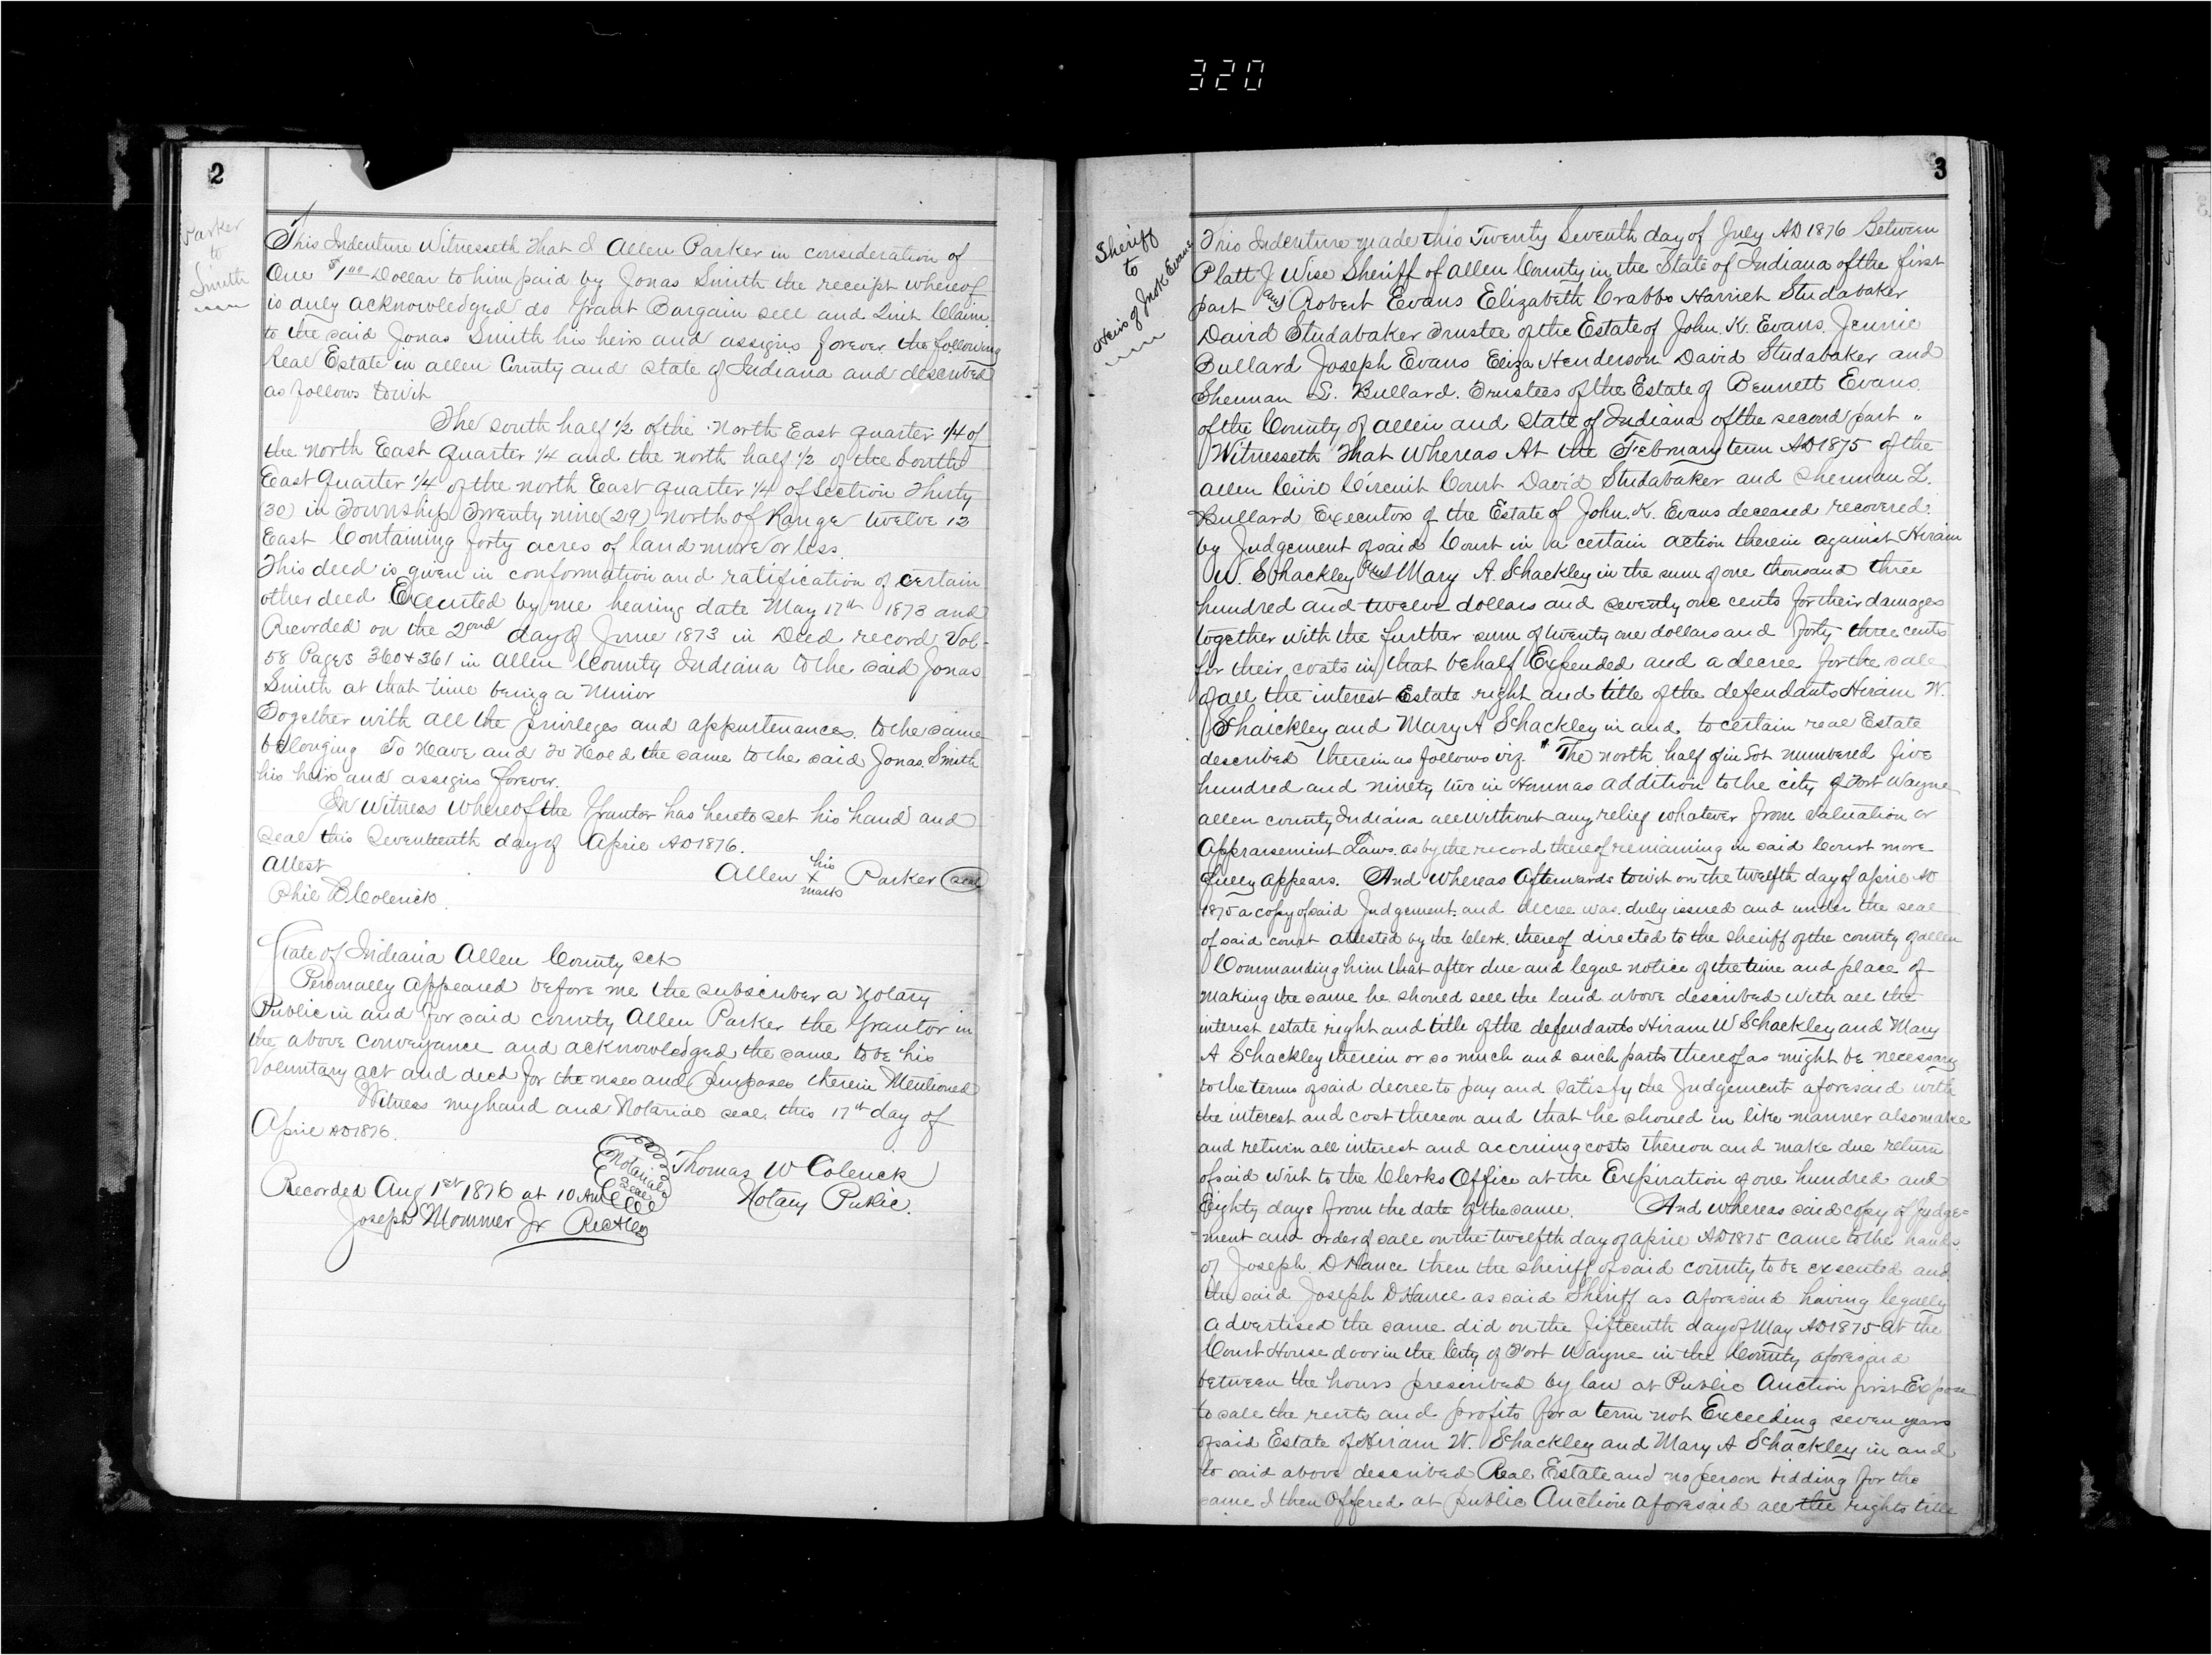 320
2
Parker
to
Smith
This Indenture Witnesseth That I Allen Parker in consideration of
One $1.00 Dollar to him paid by Jonas Smith the receipt whereof
is duly acknowledged do Grant Bargain sell and Quit Claim
to the said Jonas Smith his heirs and assigns forever the following
Real Estate in Allen County and State of Indiana and described
as follows towit
The south half 1/2 of the North East quarter 1/4 of
the North East quarter 1/4 and the north half 1/2 of the South
East quarter 1/4 of the north East quarter 1/4 of Section Thirty
(30) in Township Twenty nine (29) north of Range twelve 12
East Containing forty acres of land more or less.
This deed is given in conformation and ratification of certain
other deed Executed by me bearing date May 17th 1873 and
Recorded on the 2nd day of June 1873 in Deed record Vol-
58 Pages 360 & 361 in Allen County Indiana to the said Jonas
Smith at that time being a Minor
Together with all the privileges and appurtenances to the same
belonging To Have and To Hold the same to the said Jonas Smith
his heirs and assigns forever.
In Witness whereof the Grantor has hereto set his hand and
seal this Seventeenth day of April AD 1876.
Attest
Allen his x mark Parker (seal)
Phil B Colerick
State of Indiana Allen County sct
Personally Appeared before me the subscriber a Notary
Public in and for said county Allen Parker the Grantor in
the above conveyance and acknowledged the same to be his
Voluntary act and deed for the uses and purposes therein Mentioned
Witness my hand and Notarial seal this 17th day of
April AD 1876.
Notarial Seal
Thomas W Colerick
Notary Public.
Recorded Aug 1st 1876 at 10 AM
Joseph Mommer Jr
3
Sheriff
to
Heirs of Jno K Evans
This Indenture made this Twenty Seventh day of July AD 1876 Between
Platt J Wise Sheriff of Allen County in the State of Indiana of the first
part and Robert Evans Elizabeth Crabbs Harriet Studabaker
David Studabaker Trustee of the Estate of John. K. Evans. Jennie
Bullard Joseph Evans Eliza Henderson David Studabaker and
Sherman L. Bullard. Trustees of the Estate of Bennett Evans
of the County of Allen and State of Indiana of the second part "
Witnesseth That Whereas At the February term AD 1875 of the
Allen Civil Circuit Court David Studabaker and Sherman L.
Bullard Executors of the Estate of John. K. Evans deceased recovered
by Judgement of said Court in a certain action therein against Hiram
W. Schackley and Mary A. Schackley in the sum of one thousand three
hundred and twelve dollars and seventy one cents for their damages
together with the further sum of twenty one dollars and forty three cents
for their costs in that behalf Expended and a decree for the sale
of all the interest Estate right and title of the defendants Hiram W.
Shaickley and Mary A Schackley in and to certain real Estate
described therein as follows viz. " The north half of in Lot numbered five
hundred and ninety two in Hannas addition to the city of Fort Wayne
Allen county Indiana all without any relief whatever from Valuation or
Appraisement Laws. as by the record thereof remaining in said Court more
fully appears. And Whereas Afterwards towit on the twelfth day of april AD
1875 a copy of said Judgement and decree was duly issued and under the seal
of said court attested by the Clerk thereof directed to the sheriff of the county of allen
Commanding him that after due and legal notice of the time and place of
making the same he should sell the land above described with all the
interest estate right and title of the defendants Hiram W Schackley and Mary
A Schackley therein or so much and such parts thereof as might be necessary
to the terms of said decree to pay and satisfy the Judgement aforesaid with
the interest and cost thereon and that he should in like manner also make
and return all interest and accruing costs thereon and make due return
of said writ to the Clerks Office at the Expiration of one hundred and
Eighty days from the date of the same. And whereas said copy of judge=
-ment and order of sale on the twelfth day of april AD 1875 came to the hands
of Joseph D Hance then the sheriff of said county to be executed and
the said Joseph D Hance as said Sheriff as aforesaid having legally
advertised the same did on the fifteenth day of May AD 1875 at the
Court House door in the City of Fort Wayne in the County aforesaid
between the hours prescribed by law at Public Auction first Expose
to sale the rents and profits for a term not Exceeding seven years
of said Estate of Hiram W. Schackley and Mary A Schackley in and
to said above described Real Estate and no person bidding for the
same I then Offered at public Auction aforesaid all the rights title